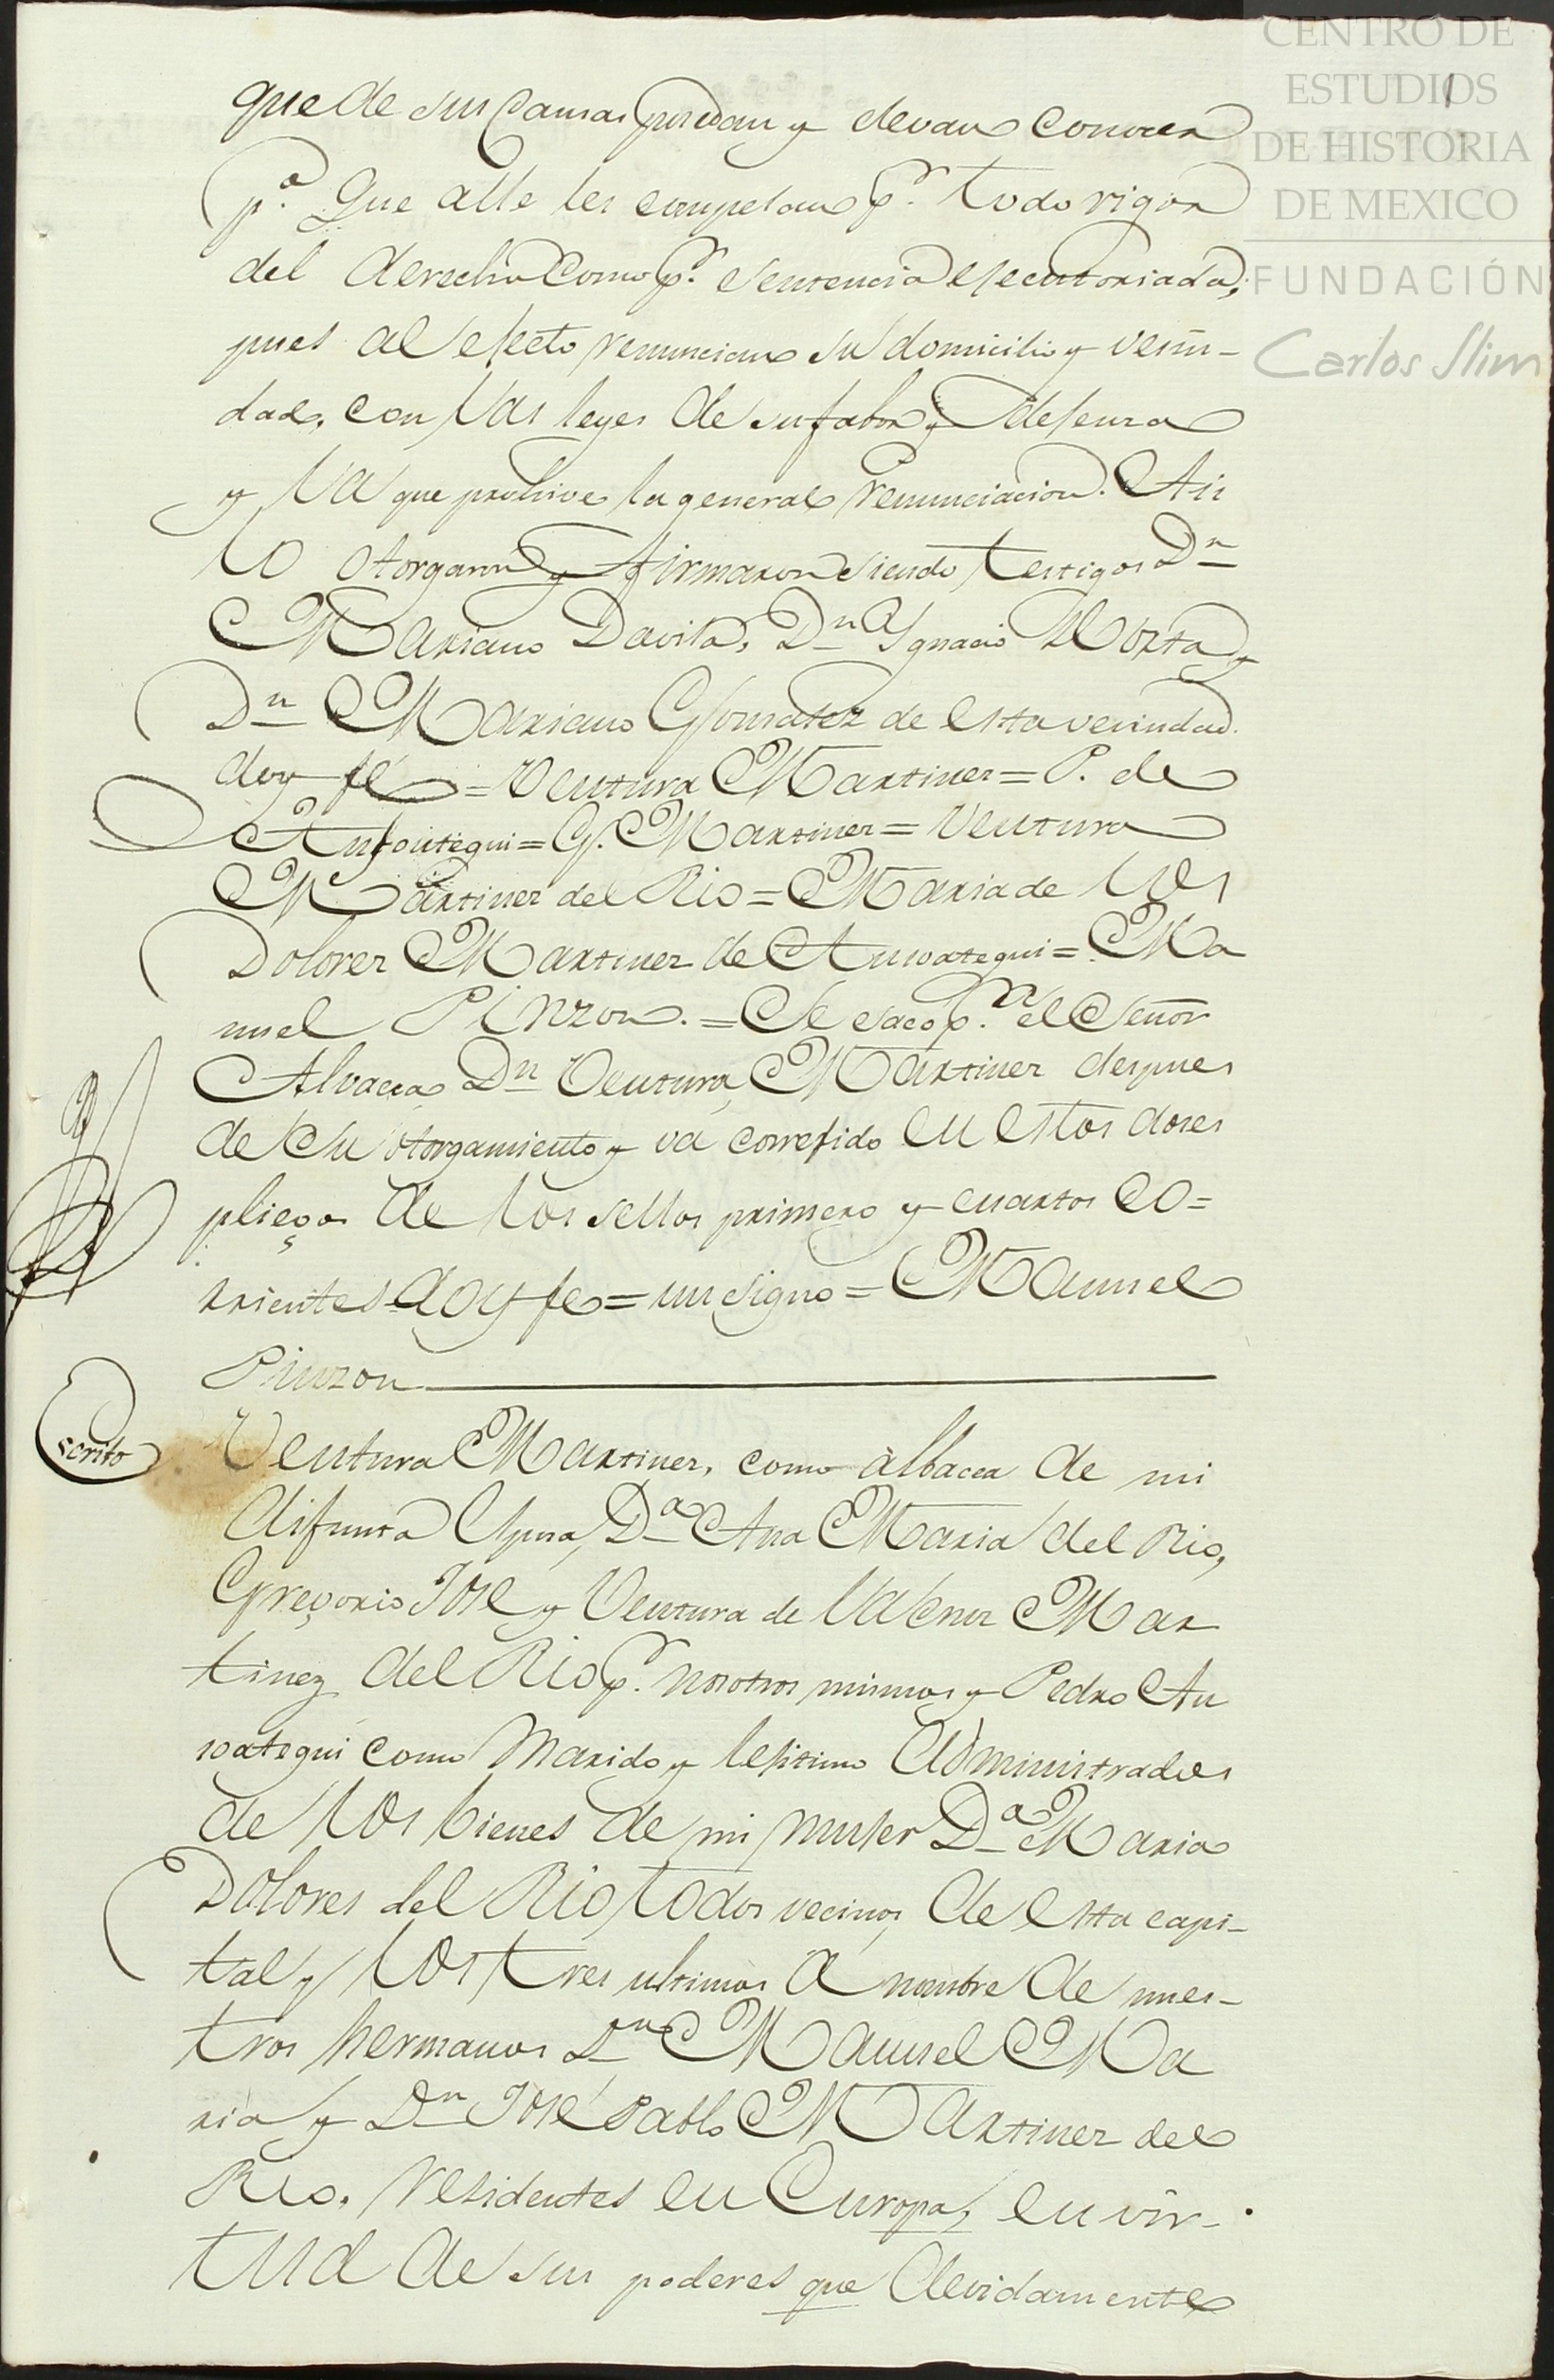 CENTRO DE
ESTUDIOS
DE HISTORIA
DE MEXICO
FUNDACIÓN
Carlos Slim
que de sus causas puedan y devan conocer
p.a que alle les compelan p.r todo rigor
del derecho como p.r sentencia executoriada,
pues al efecto renuncian su domicilio y vecin-
dad, con las leyes de su fabor y defensa
y la que prohive la general renunciacion. Asi
lo otorgaron y firmaron siendo testigos Dn
Mariano Davila, Dn Ygnacio Horta y
Dn Mariano Gonzalez de esta vecindad.
doy fé = Ventura Martinez = P. de
Ansoategui = G. Martinez = Ventura
Martinez del Rio = Maria de los
Dolores Martinez de Ansoategui = Ma
nuel Pinzon. = Se sacó p.a el Señor
Alvacea Dn Ventura Martinez despues
de su otorgamiento y va corregido en estos doses
pliegos de los sellos primero y cuartos co=
rrientes doy fe = un signo = Manuel
Pinzon
Escrito
Ventura Martinez, como albacea de mi
difunta Esposa, Da Ana Maria del Rio,
Gregorio José y Ventura de la Cruz Mar
tinez del Rio p.r nosotros mismos y Pedro An
soategui como marido y lejitimo Administrador
de los bienes de mi mujer Da Maria
Dolores del Rio, todos vecinos de esta capi-
tal y los tres ultimos a nombre de nues-
tros hermanos Dn Manuel Ma
ria y Dn José Pablo Martinez del
Rio, residentes en Europa, en vir-
tud de sus poderes que devidamente